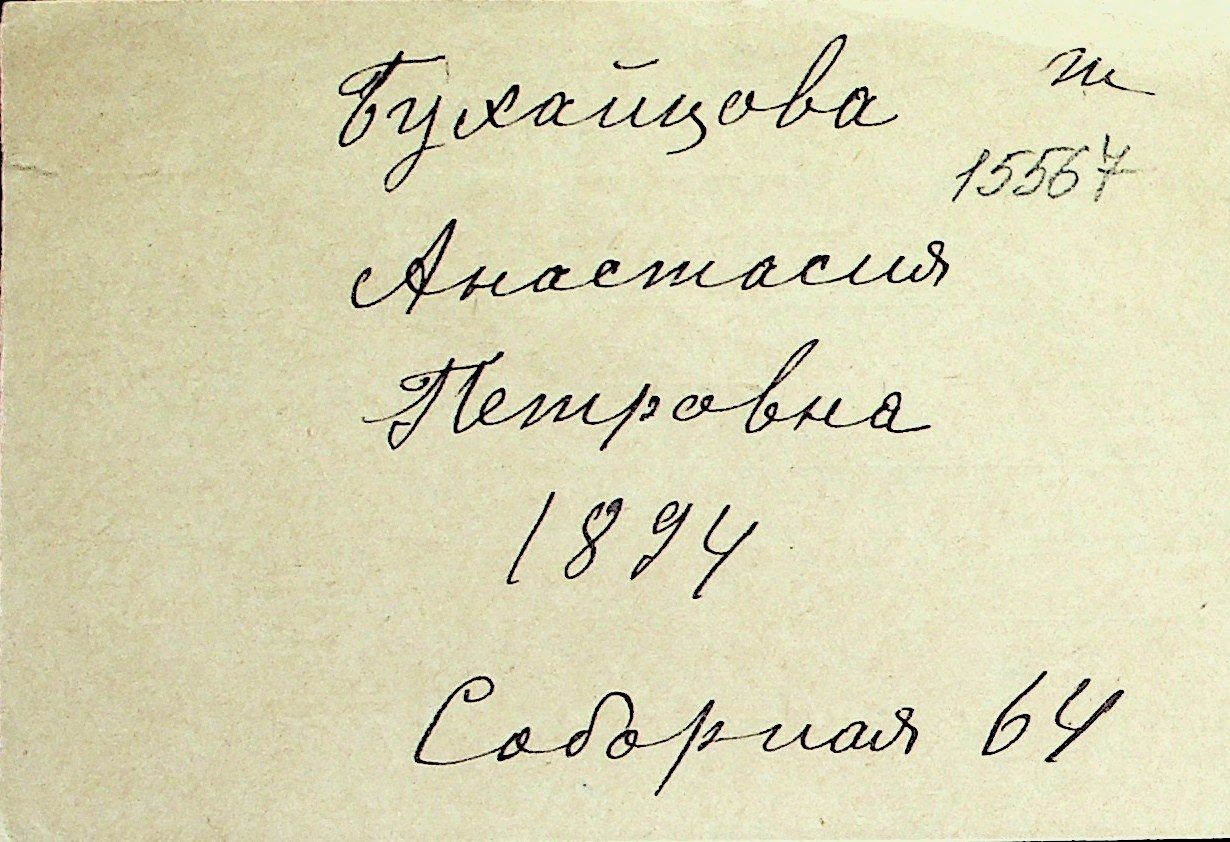 Бухайцова т
15567
Анастасия
Петровна
1894
Соборная 64